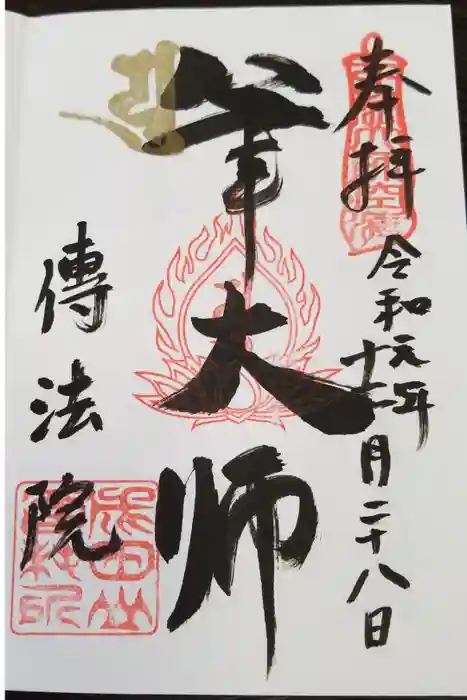 奉拝
令和元年
十二月二十八日
筆大師
傳法院